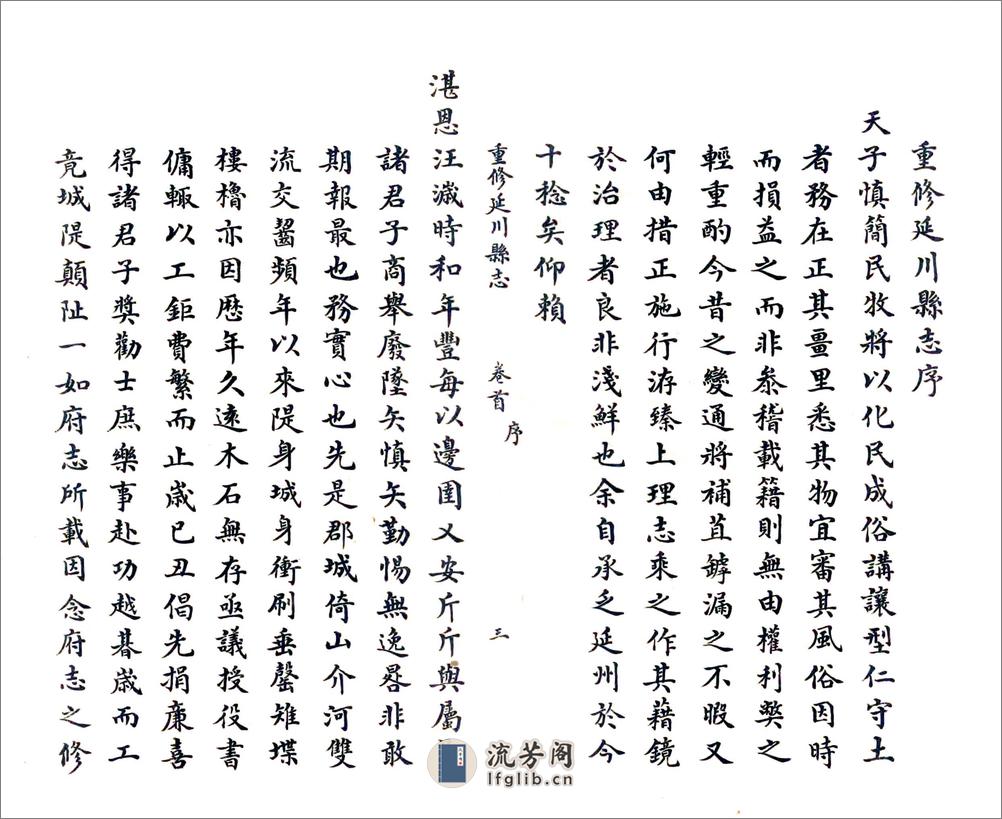 重修延川縣志序
天子慎簡民牧將以化民成俗講讓型仁守土
者務在正其畺里悉其物宜審其風俗因時
而損益之而非叅稽載籍則無由權利獘之
輕重酌今昔之變通將補苴罅漏之不暇又
何由措正施行洊臻上理志乘之作其藉鏡
於治理者良非淺鮮也余自承乏延州於今
十稔矣仰賴
重修延川縣志 卷首 序 三
湛恩汪濊時和年豐每以邊圉乂安斤斤與屬
諸君子商舉廢墜矢慎矢勤惕無逸晷非敢
期報最也務實心也先是郡城倚山介河雙
流交齧頻年以來隄身城身衝刷垂罄雉堞
樓櫓亦因歷年久遠木石無存亟議授役書
傭輙以工鉅費繁而止歲已丑倡先捐亷喜
得諸君子獎勸士庶樂事赴功越朞歲而工
竟城隄顛阯一如府志所載因念府志之修
流芳阁
lfglib.cn